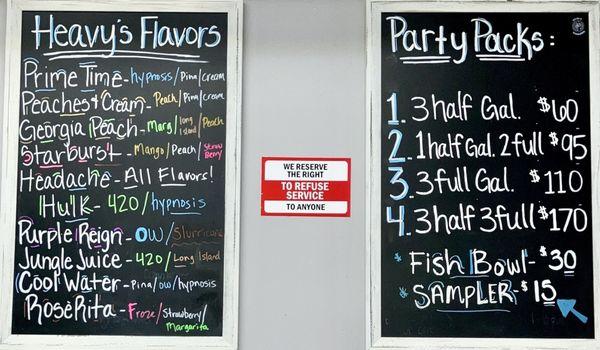 Heavy's Flavors
Prime Time - hypnosis/Pina/Cream
Peaches & Cream - Peach/Pina/Cream
Georgia Peach - Marg/long Island/Peach
Starburst - Mango/Peach/Straw Berry
Headache - All Flavors!
Hulk - 420/hypnosis
Purple Reign - OW/Slurricane
Jungle Juice - 420/Long Island
Cool Water - Pina/ow/hypnosis
RoseRita - Froze/Strawberry/Margarita
WE RESERVE
THE RIGHT
TO REFUSE
SERVICE
TO ANYONE
Party Packs:
1. 3 half Gal. $60
2. 1half Gal. 2full $95
3. 3 full Gal. $110
4. 3 half 3full $170
* Fish Bowl - $30
* SAMPLER - $15